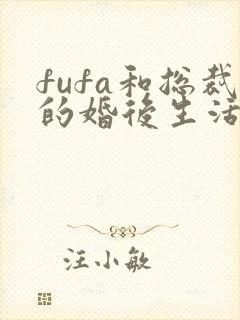 fufa和总裁
的婚後生活
汪小敏